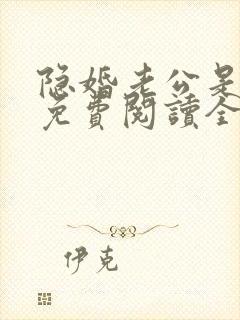 隐婚老公是
免費閱讀全
伊克